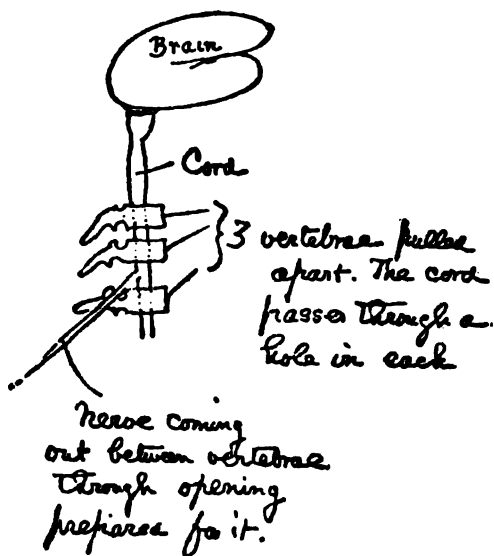 Brain
Cord
3 vertebrae pulled
apart. The cord
passes through a
hole in each
nerve coming
out between vertebrae
through opening
prepared for it.